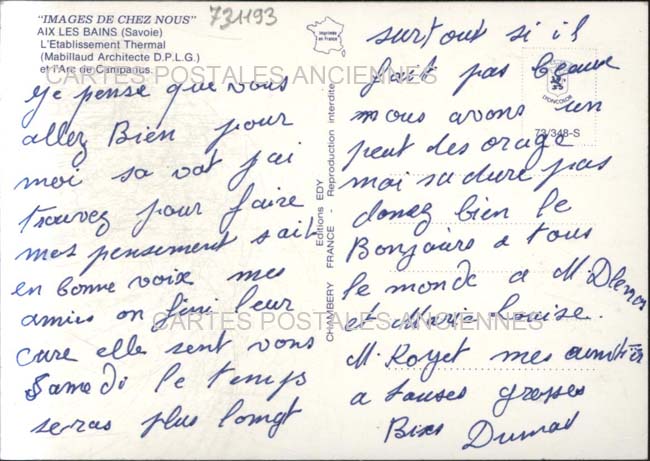 "IMAGES DE CHEZ NOUS"
731193
AIX LES BAINS (Savoie)
L'Etablissement Thermal
(Mabillaud Architecte D.P.L.G.)
et l'Arc de Campanus.
CARTES POSTALES ANCIENNES
Je pense que vous
allez Bien pour
moi sa vat j'ai
trouvez pour faire
mes pensement sait
en bonne voix mes
amies on fini leur
cure elle sent vons
Samedi le temps
seras plus longt
Imprimé
en France
Editions EDY
CHAMBERY FRANCE - Reproduction interdite
DIONCOLOR
73/348-S
surtout si il
fait pas beau
nous avons un
peut des orage
mai sa dure pas
donez bien le
Bonjours a tous
le monde a M.
et Marie Louise.
M. Royet mes
a toutes grosses
Bises Dumas
CARTES POSTALES ANCIENNES